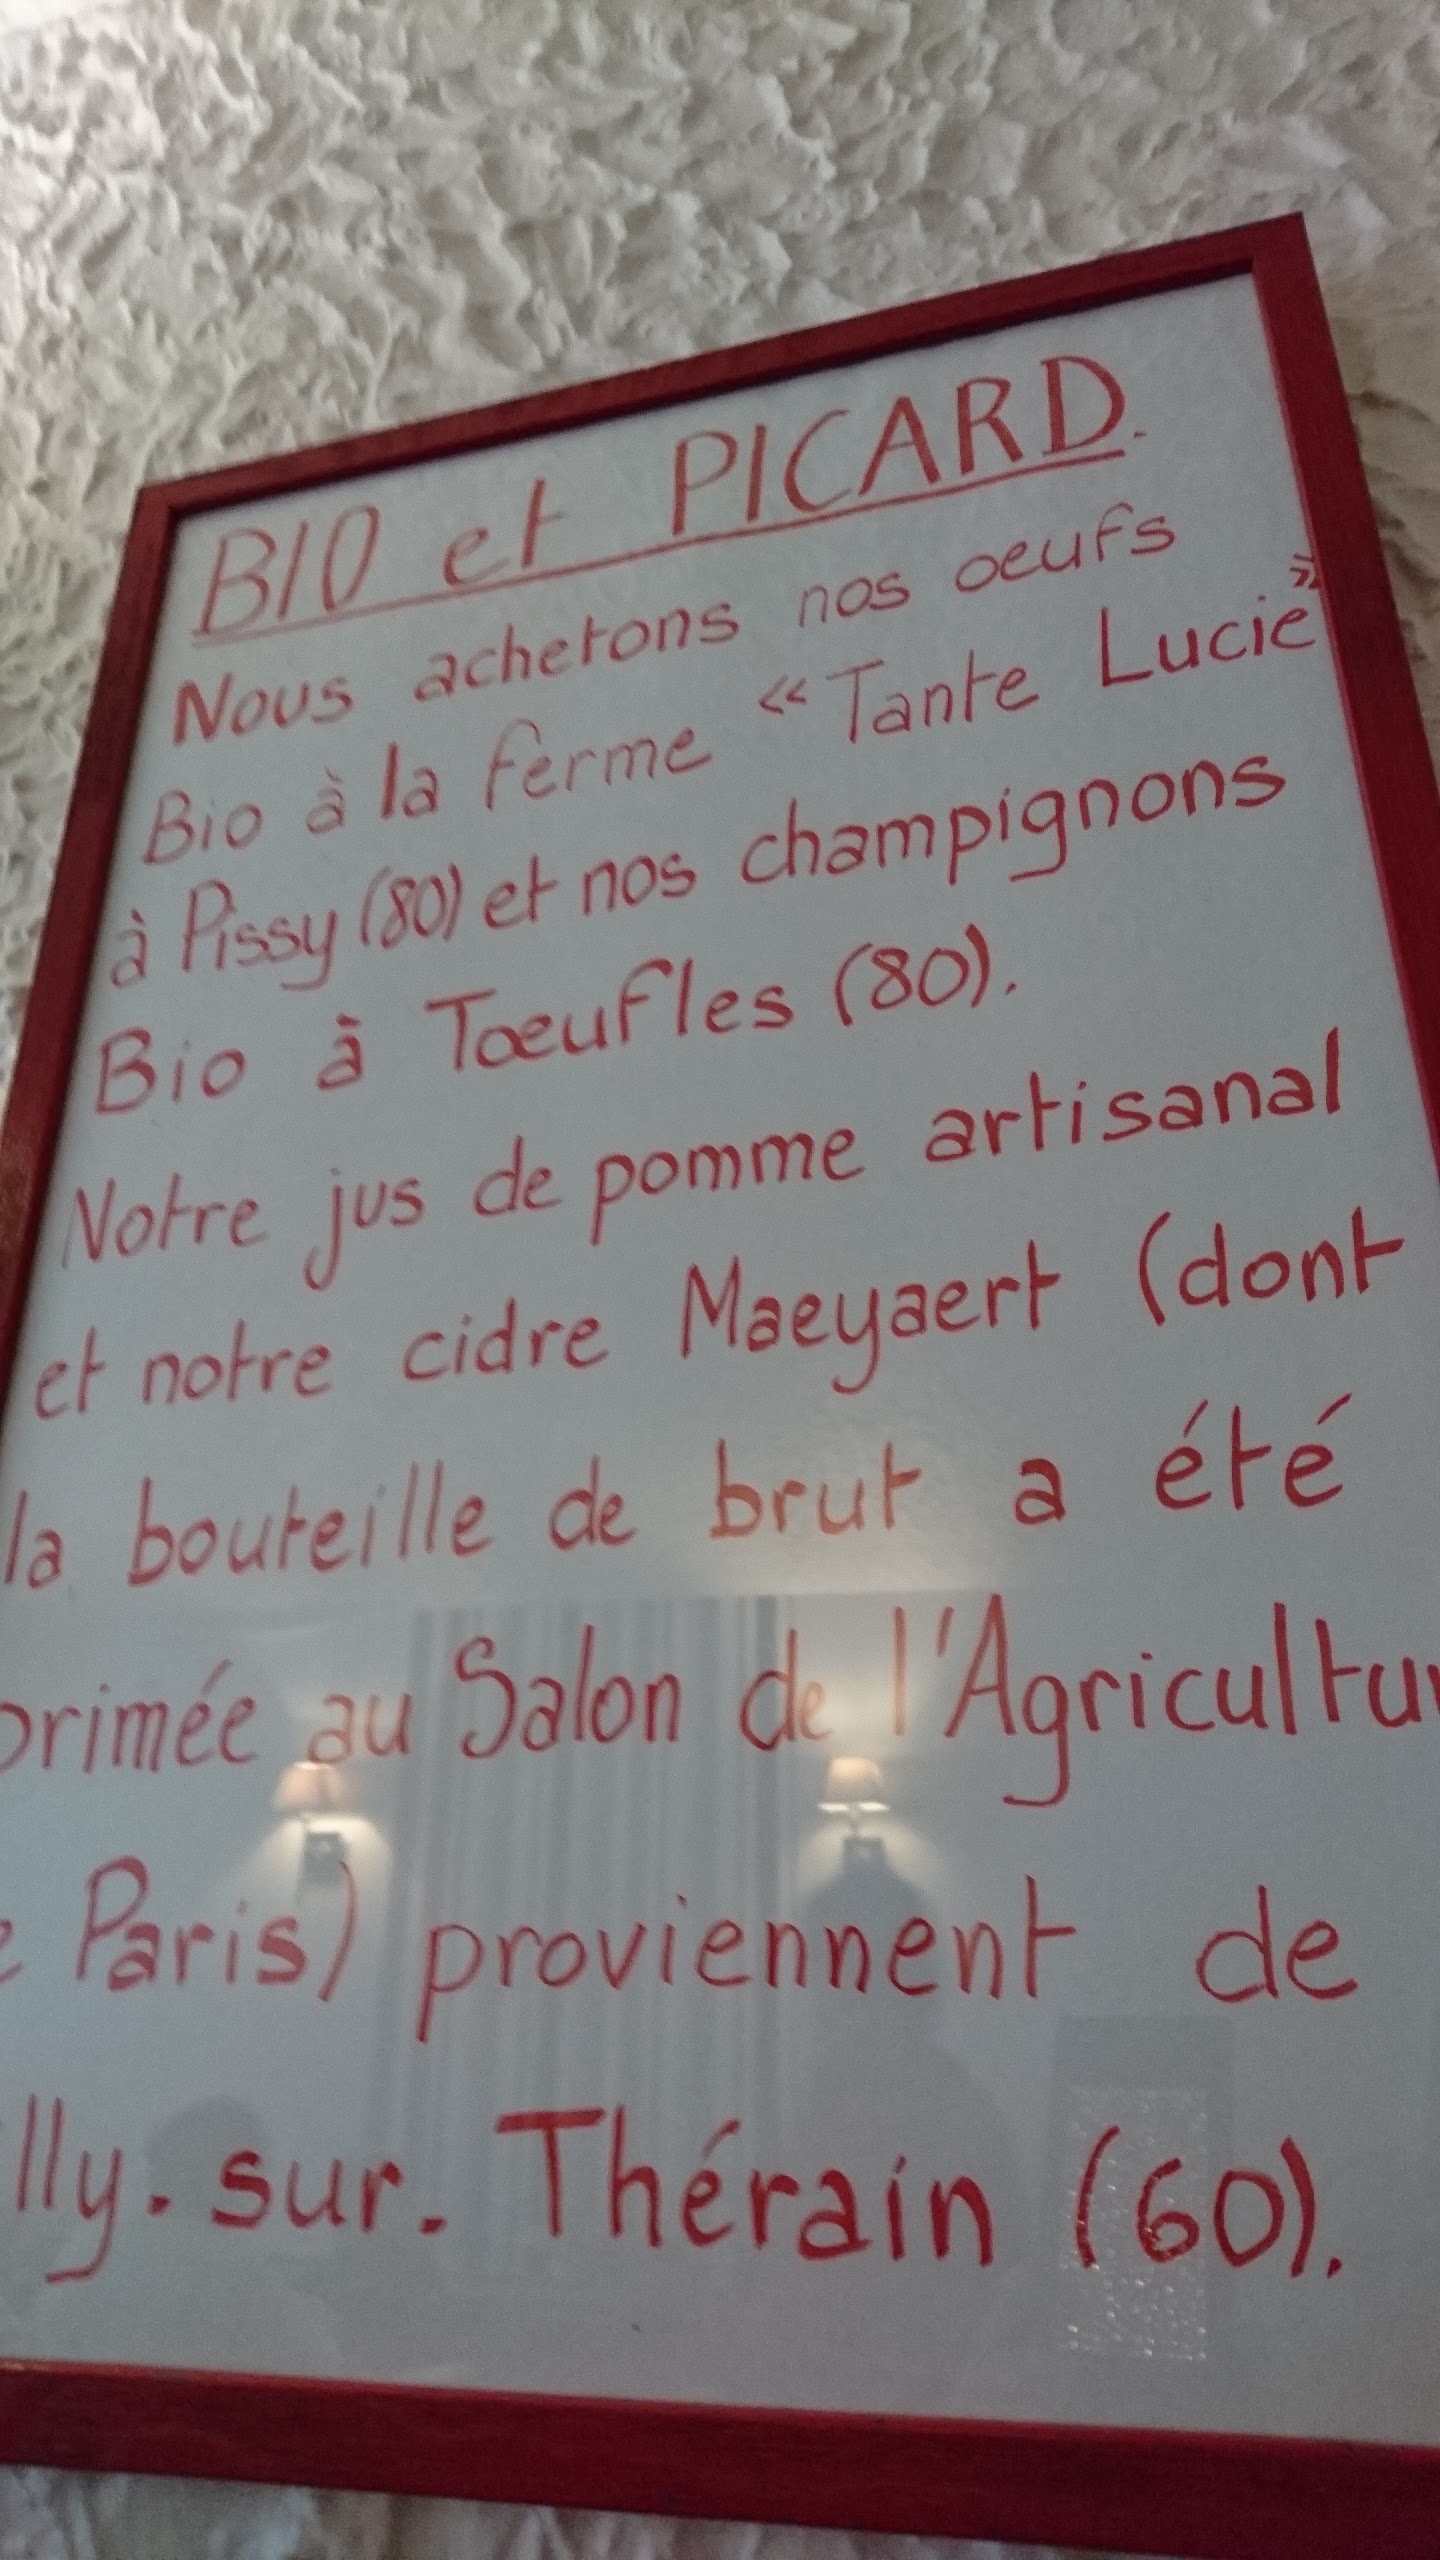 BIO et PICARD.
Nous achetons nos oeufs
Bio à la ferme « Tante Lucie »
à Pissy (80) et nos champignons
Bio à Tœufles (80).
Notre jus de pomme artisanal
et notre cidre Maeyaert (dont
la bouteille de brut a été
primée au Salon de l'Agricultur
e Paris) proviennent de
lly.sur.Thérain (60).